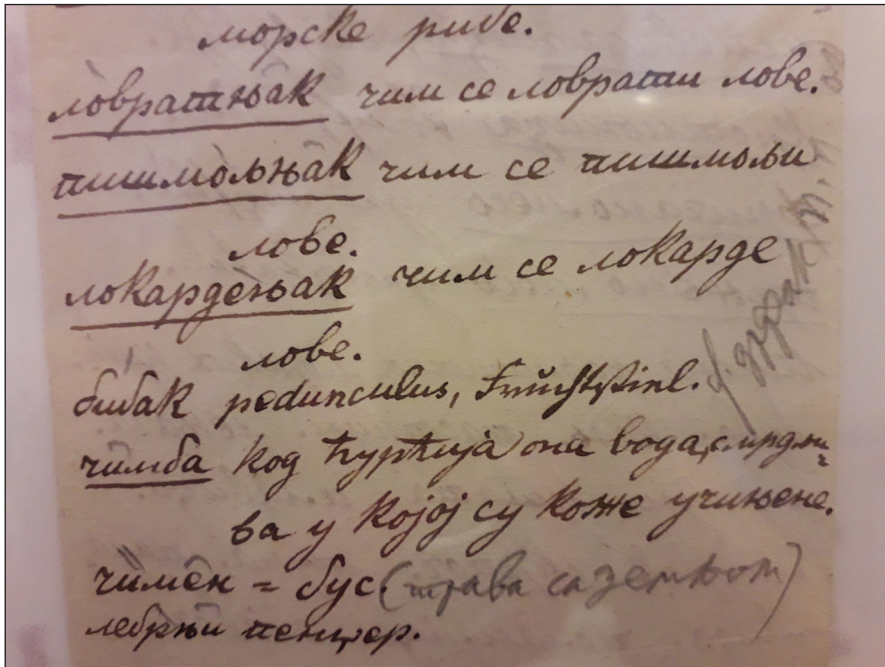 морске рибе.
ло̀вратња̄к чим се ловрати лове.
пишмо̀љња̄к чим се пишмољи
лове.
локардѐња̄к чим се локарде
лове.
бибак pedunculus, Fruchtstiel.
чимба код ћурчија она вода, смрдљи=
ва у којој су коже учињене.
чи̏ме̄н = бус. (трава са земљом)
пенџер.